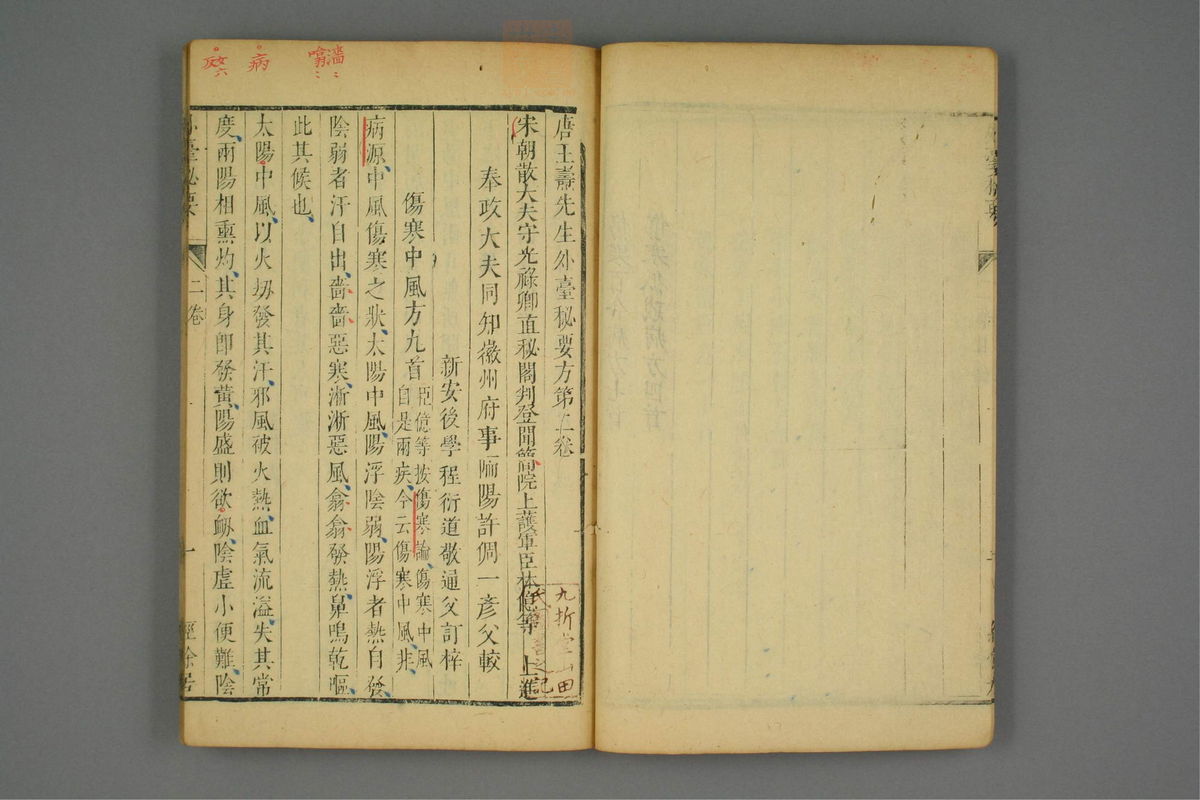 唐王燾先生外臺秘要方第二卷
宋朝散大夫守光祿卿直秘閣判登聞簡院上護軍臣林億等上進
奉政大夫同知徽州府事 陽許倜一彥父較
新安後學程衍道敬通父訂梓
傷寒中風方九首臣億等按傷寒論傷寒中風
自是兩疾今云傷寒中風非
病源中風傷寒之狀太陽中風陽浮陰弱陽浮者熱自發
陰弱者汗自出嗇嗇惡寒淅淅惡風翕翕發熱鼻鳴乾嘔
此其候也
太陽中風以火刼發其汗邪風被火熱血氣流溢失其常
度兩陽相熏灼其身卽發黃陽盛則欲衂陰虛小便難陰
二卷
一
經餘居
九折堂山田
氏圖書之記
病